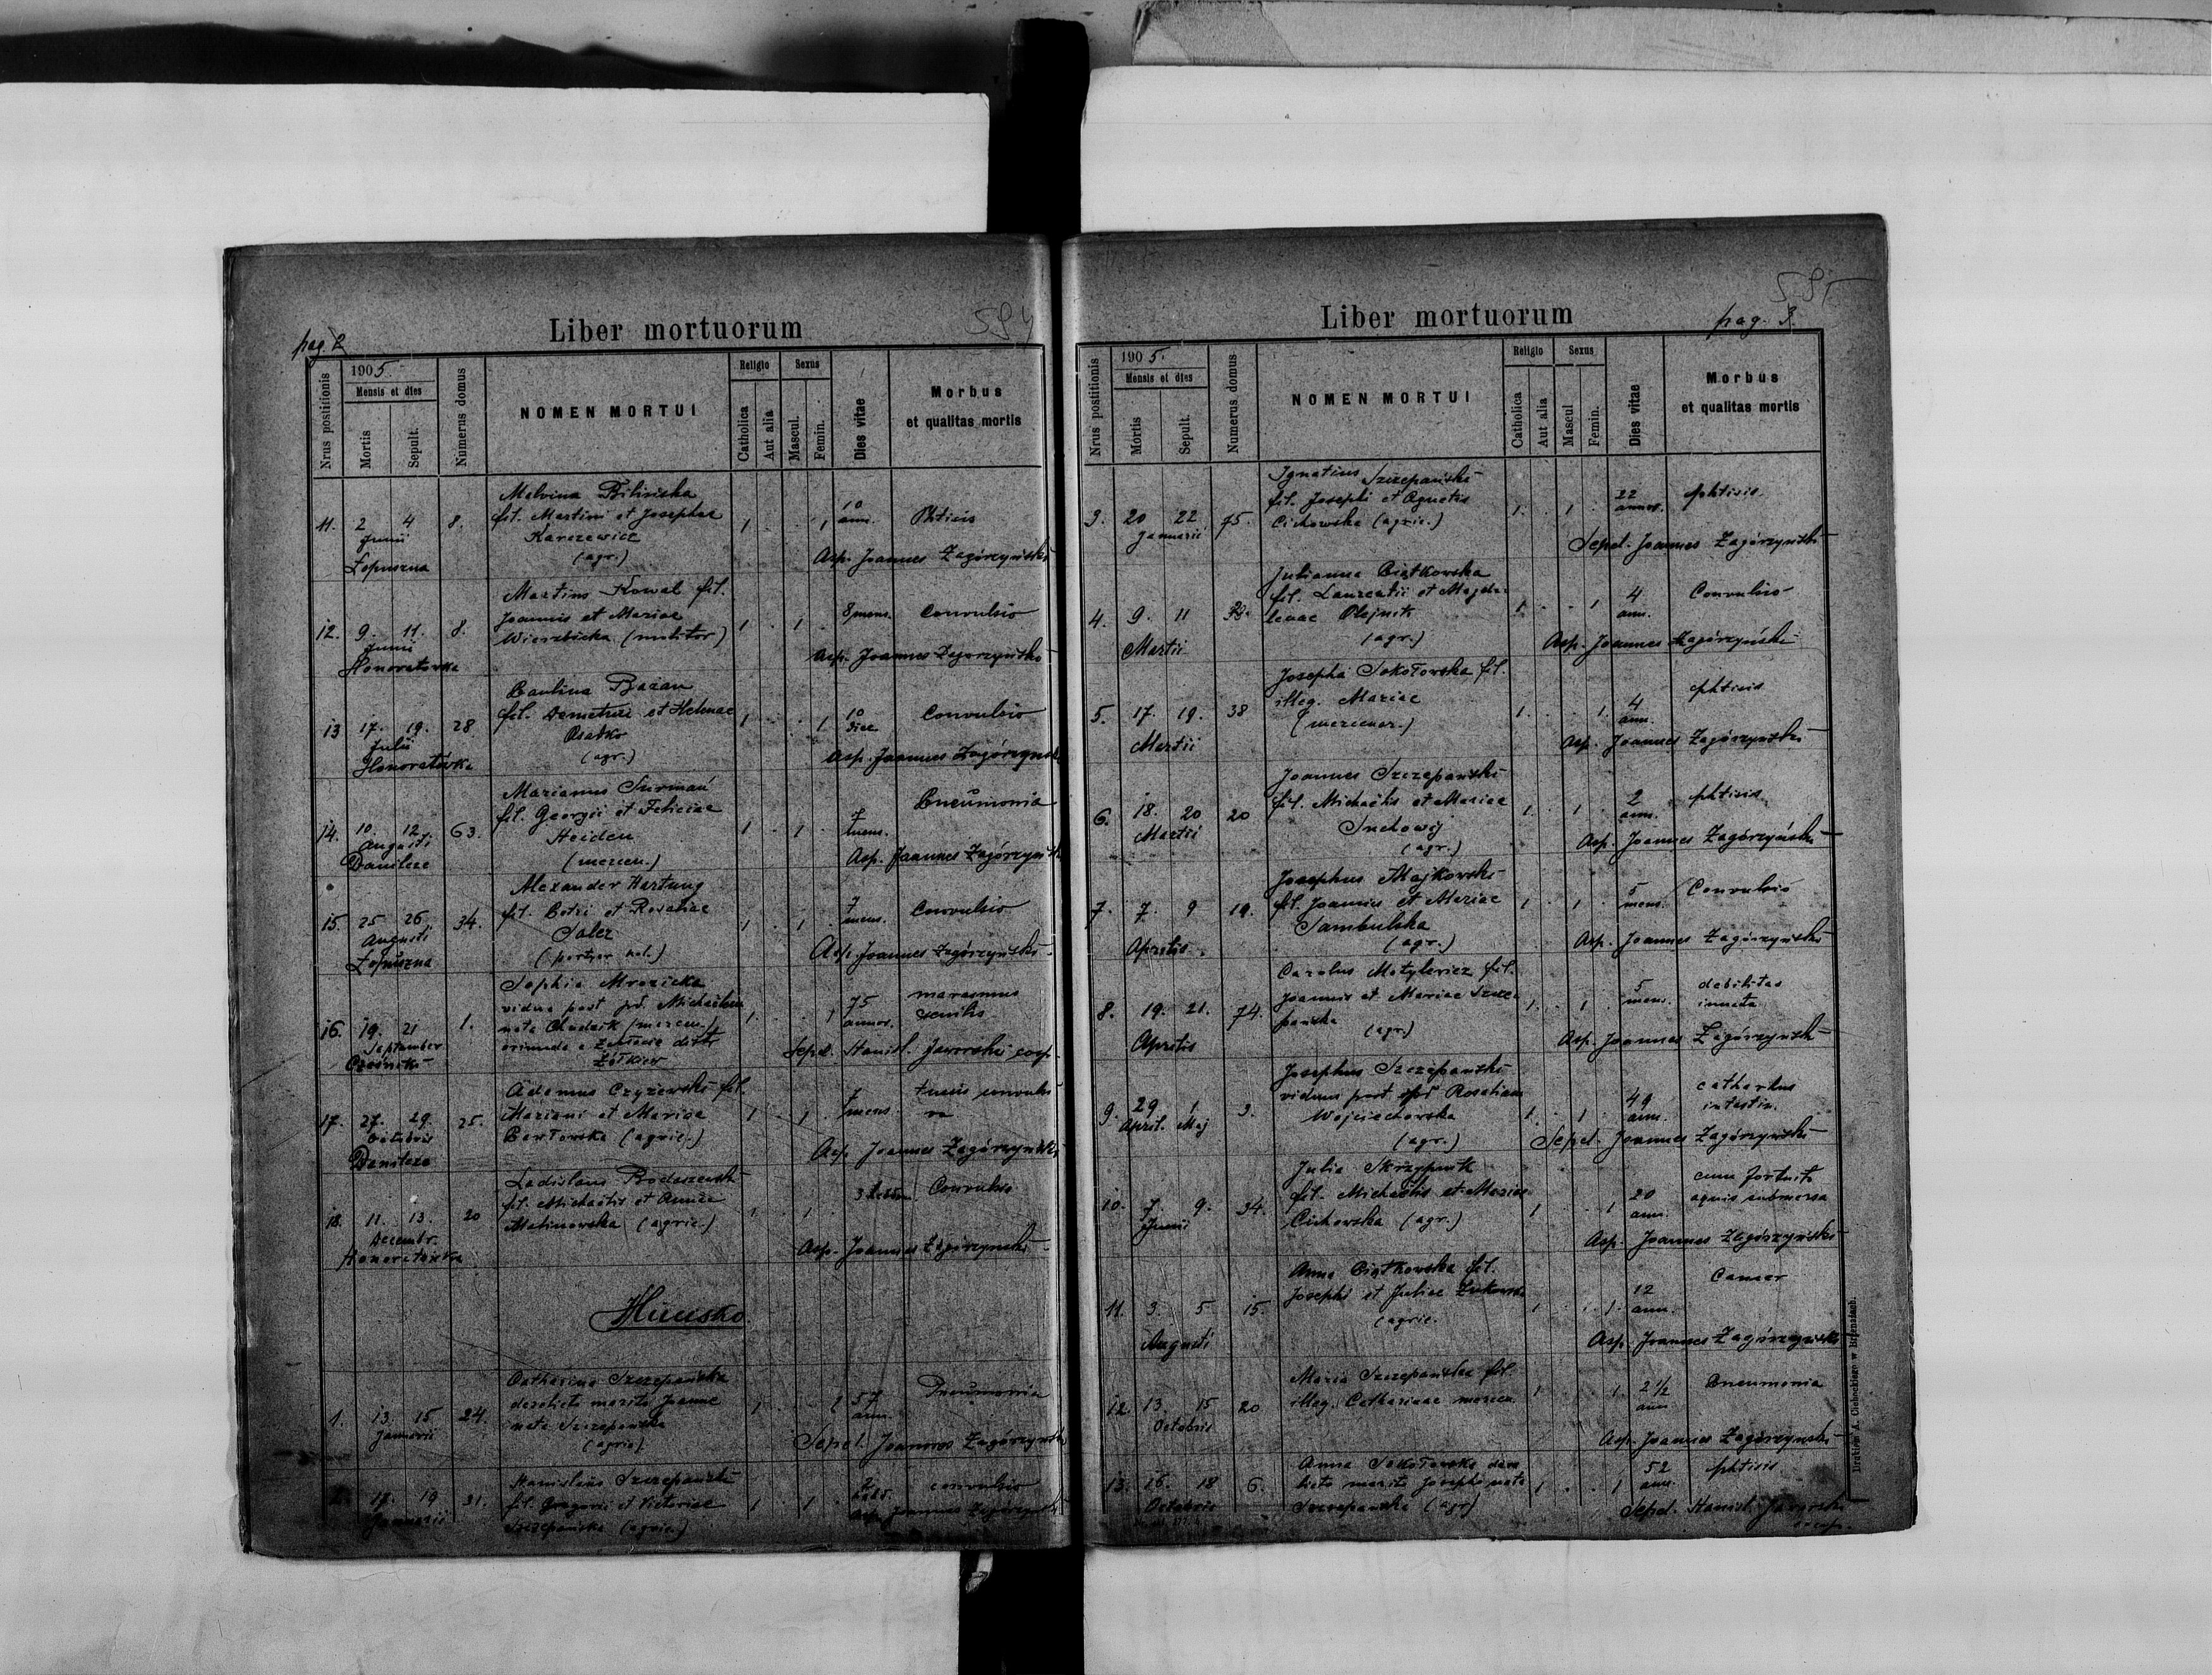 pag. 2
Liber mortuorum
594
Nrus postitionis
1905
Mensis et dies
Mortis
Sepult.
Numerus domus
NOMEN MORTUI
Religio
Catholica
Aut alia
Sexus
Mascul.
Femin.
Dies vitae
Morbus
et qualitas mortis
11. 2 4 8. Malvina Bilińska 1 1 10 Phtisis
Junii fil. Martini et Josephae ann.
Łopuszna Karczewicz
(agr.) Asp. Joannes Zagórzyński
12. 9. 11. 8. Martinus Kowal fil. 1 1 8 mens. Convulsio
Junii Joannis et Mariae
Honoratowka Wierzbicka (molitor) Asp. Joannes Zagorzyński
13 17. 19. 28. Paulina Bazan 1 1 10 Convulsio
Julii fil. Demetrii et Helenae
Honoratówka
(agr.) Asp. Joannes Zagórzyński
14. 10. 12. 63. Marianus Surmań 1 1 7 Pneumonia
Augusti fil. Georgii et Feliciae mens.
Danilcze Heiden
(mercen.) Asp. Joannes Zagórzyński
15. 25 26 34. Alexander Hartung 1 1 7 Convulsio
Augusti fil. Petri et Rosaliae mens.
Łopuszna Saler
Asp. Joannes Zagórzyński
16. 19. 21 1. Sophia Mrozicka 1 1 75 marasmus
September vidua post pd. Michaelem annor. senilis
nata (mercen.)
oriunda e distr
Żółkiew Sepel. Stanisl. Jaworski coop.
17. 27. 29. 25. Adamus Czyżewski fil. 1 1 7 tussis convulsi
Octobris Mariani et Mariae mens. va
Danilcze (agric.) Asp. Joannes Zagórzyński
18. 11. 13. 20 Ladislaus 1 1 3 Convulsio
Decembr. fil. Michaëlis et Annae
Honoratówka Malinowska (agric.) Asp. Joannes Zagórzyński
Hucisko.
1. 13. 15 24. Catharina Szczepańska 1 1 57 Pneumonia
Januarii derelicto marito Joanne ann.
nata Szczepańska
(agric.) Sepel. Joannes Zagórzyński
2. 17. 19 31. Stanislaus Szczepański 1 1 convulsio
Januarii fil. Gregorii et Victoriae
Szczepańska (agric.) Asp. Joannes Zagórzyński
595
Liber mortuorum
pag. 3.
Nrus postitionis
1905.
Mensis et dies
Mortis
Sepult.
Numerus domus
NOMEN MORTUI
Religio
Catholica
Aut alia
Sexus
Mascul
Femin.
Dies vitae
Morbus
et qualitas mortis
3. 20 22 75. Ignatius Szczepański 1. 1 22 phtisis
Januarii fil. Josephi et Agnetis annor.
Cichowska (agric.)
Sepel. Joannes Zagórzyński
4. 9. 11 Julianna Piątkowska 1 1 4 Convulsio
Martii fil. Laurentii et Magda- ann.
lenae Olejnik
(agr.) Asp. Joannes Zagórzyński
5. 17. 19. 38 Josepha Sokołowska fil. 1. 1. 4 phtisis
Martii illeg. Mariae ann.
(mercenar.)
Asp. Joannes Zagórzyński
6. 18. 20 20 Joannes Szczepański 1. 1 2 phtisis
Martii fil. Michaëlis et Mariae ann.
(agr.) Asp. Joannes Zagórzyński
7. 7. 9 19. Josephus Majkowski 1 1 5 Convulsio
Aprilis fil. Joannis et Mariae mens.
Sambulska
(agr.) Asp. Joannes Zagórzyński
8. 19. 21. 74. Carolus Motylewicz fil. 1. 1 5 debilitas
Aprilis Joannis et Mariae Szcze- mens. innata
pańska
(agr.) Asp. Joannes Zagórzyński
9. 29 1 3. Josephus Szczepański 1. 1 49 catharhus
April. Maj viduus post pd Rosaliam ann. intestin.
Wojciechowska
(agr.) Sepel. Joannes Zagórzyński
10. 7. 9. 34. Julia Skrzypnik 1 1 20 cum fortuito
Junii fil. Michaëlis et Mariae ann. aquis submersa
Cichowska (agr.)
Asp. Joannes Zagórzyński
11. 3. 5 15. Anna Piątkowska fil. 1 1. 12 Cancer
Augusti Josephi et Juliae Żukowska ann.
(agric.
Asp. Joannes Zagórzyński
12. 13. 15 20 Maria Szczepańska fil. 1 1. 2 1/2 Pneumonia
Octobris illeg. Catharinae mercen. ann
Asp. Joannes Zagórzyński
13. 16. 18 6. Anna Sokołowska dere- 1 1 52 phtisis
Octobris licto marito Josepho nata ann.
Szczepańska (agr.) Sepel. Stanisl. Jaworski
Drukiem A. Ciehockiego w Brzeżanach.